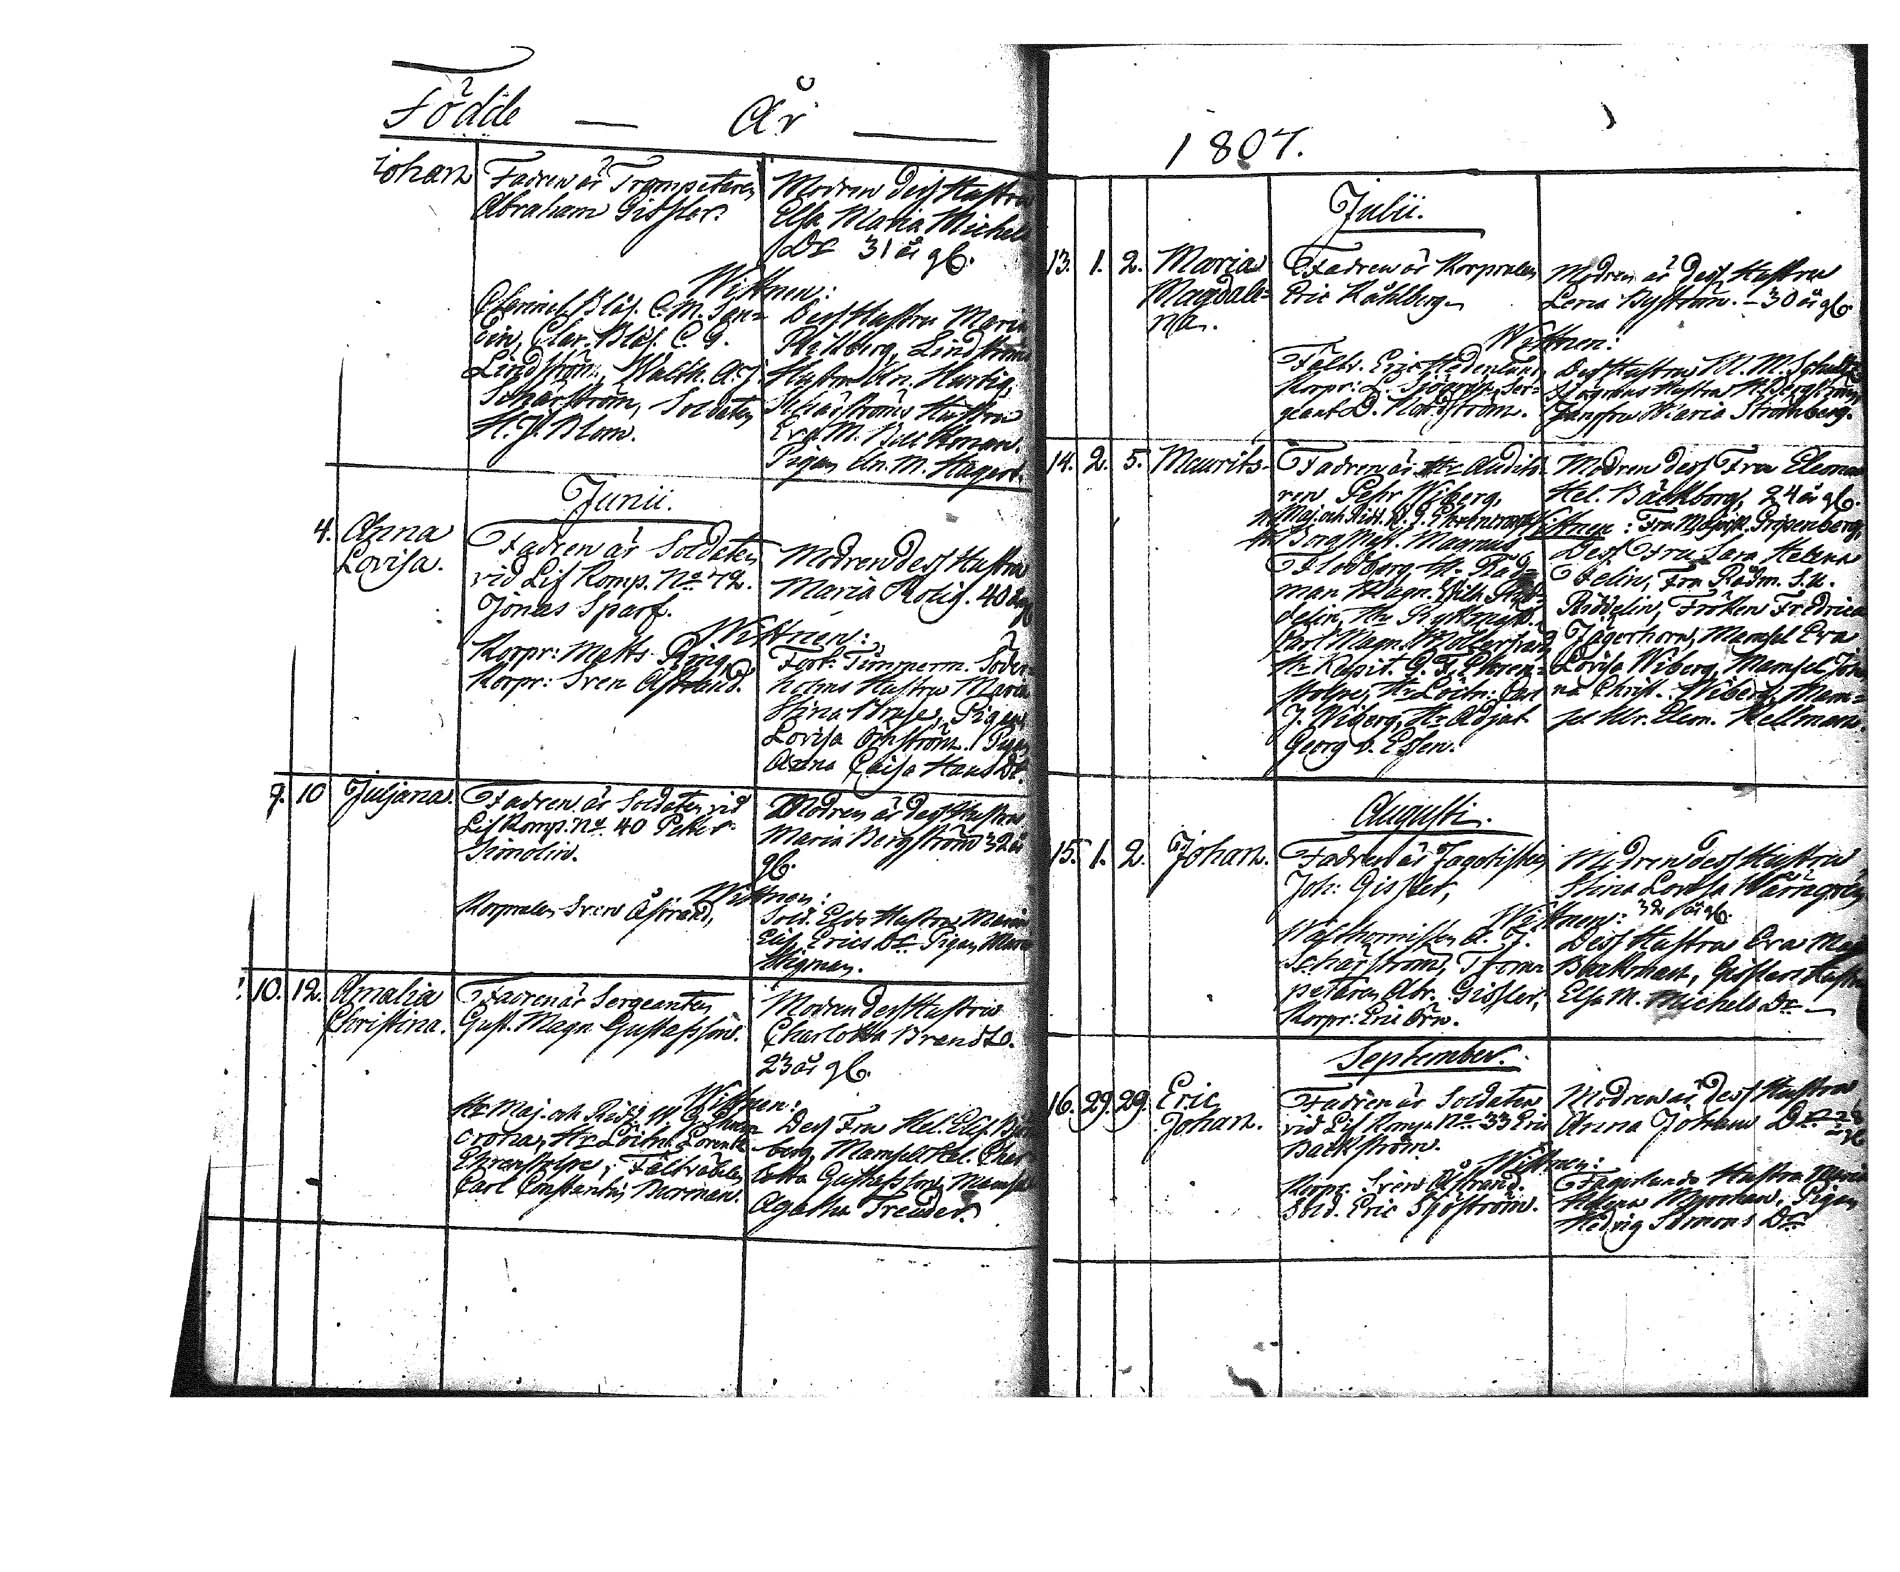 Födde — År —
Johan
Fadren är Trompetaren
Abraham Gissler.
Modren dess Hustru
Elsa Maria Michels
Dr 31 år gl.
Wittnen:
Clarinet Blås. C. M.
Clar. Blås. C. G.
Lindström, Walth. A. J.
Schärström, Soldaten
H. J. Blom.
Dess Hustru Maria
Lindströms
Hustru An. Hartig,
Schärströms Hustru
Eva M. Backman.
Pigan An. M. Hagert.
Junii.
4. Anna
Lovisa.
Fadren är Soldaten
vid Lif Komp. No 72.
Jonas Sparf.
Modren dess Hustru
Maria Rolig. 40 år
Wittnen:
Korpr: Matts Ring,
Korpr: Sven Åstrand.
Timmerm. Söder-
holms Hustru Maria
Stina Kruse, Pigan
Lovisa Örnström. Pigan
Anna Caisa Hans Dr.
7. 10 Juljana.
Fadren är Soldaten vid
Lif Komp. No 40 Petter
Simolin.
Modren är dess Hustru
Maria Bergström 32 år
gl.
Wittnen:
Korpralen Sven Åstrand,
Sold. Elds Hustru Maria
Elis. Erics Dr. Pigan Maria
Wigman.
10. 12. Amalia
Christina.
Fadren är Sergeanten
Gust. Magn. Gustafsson.
Modren dess Hustru
Charlotta Brandt.
23 år gl.
Wittnen:
Hr Maj. och Ridd.
Hr Loitn. Lorentz
Ehrenstolpe, Fältväbelen
Carl Constantin Burman.
Dess Fru Hel. Elis.
Mamsell Hel. Char-
lotta Gustafsson, Mamsell
Agatha Treuder.
1807.
Julii.
13. 1. 2. Maria
Magdale-
na.
Fadren är Korpralen
Eric Kåhlberg.
Modren är dess Hustru
Lena Byström. – 30 år gl.
Wittnen:
Fältv. Eric Hedenlund,
Korpr: L. Sjögren, Ser-
geant D. Nordström.
Dess Hustru M. M. Schultz
Sjögrens Hustru
Jungfru Maria Strömberg.
14. 2. 5. Maurits.
Fadren är Hr Auditö-
ren Pehr Wiberg,
Modren dess Fru Eleona
Hel. Bäckborg. 24 år gl.
Wittnen:
Hr Maj. och Ridd.
Magnus
Flodberg, Hr Råd-
man Magn. Wilh.
Carl Magn. Möllersvärd
Hr Kapit. G. F. Ehren-
stolpe, Hr Loitn: Carl
J. Wiberg, Hr Adjut
Georg v. Essen.
Dess Fru Sara Helena
Felin, Fru Rådm. S. U.
Riddelin, Fröken Fredrica
Jägerhorn, Mamsel Eva
Lovisa Wiberg, Mamsel Johan-
na Christ. Wiberg, Mam-
sel Ulr. Elem. Hellman.
Augusti.
15. 1. 2. Johan.
Fadren är Fagotisten
Joh: Gissler,
Modren dess Hustru
Stina Lovisa Wärngren
32 år gl.
Wittnen:
Walthornisten A. J.
Schärström, Trom-
petaren Abr. Gissler,
Korpr: Eric Örn.
Dess Hustru Eva Mag
Backman, Gisslers Hustru
Elsa M. Michels Dr —
September.
16. 29. 29. Eric
Johan.
Fadren är Soldaten
vid Lif Komp. No 33 Eric
Backström.
Modren är dess Hustru
Anna Johans Dr 28
år gl
Wittnen:
Korpr. Sven Åstrand.
Sold. Eric Sjöström.
Fagerlunds Hustru Maria
Helena Nyman, Pigan
Hedvig Simons Dr